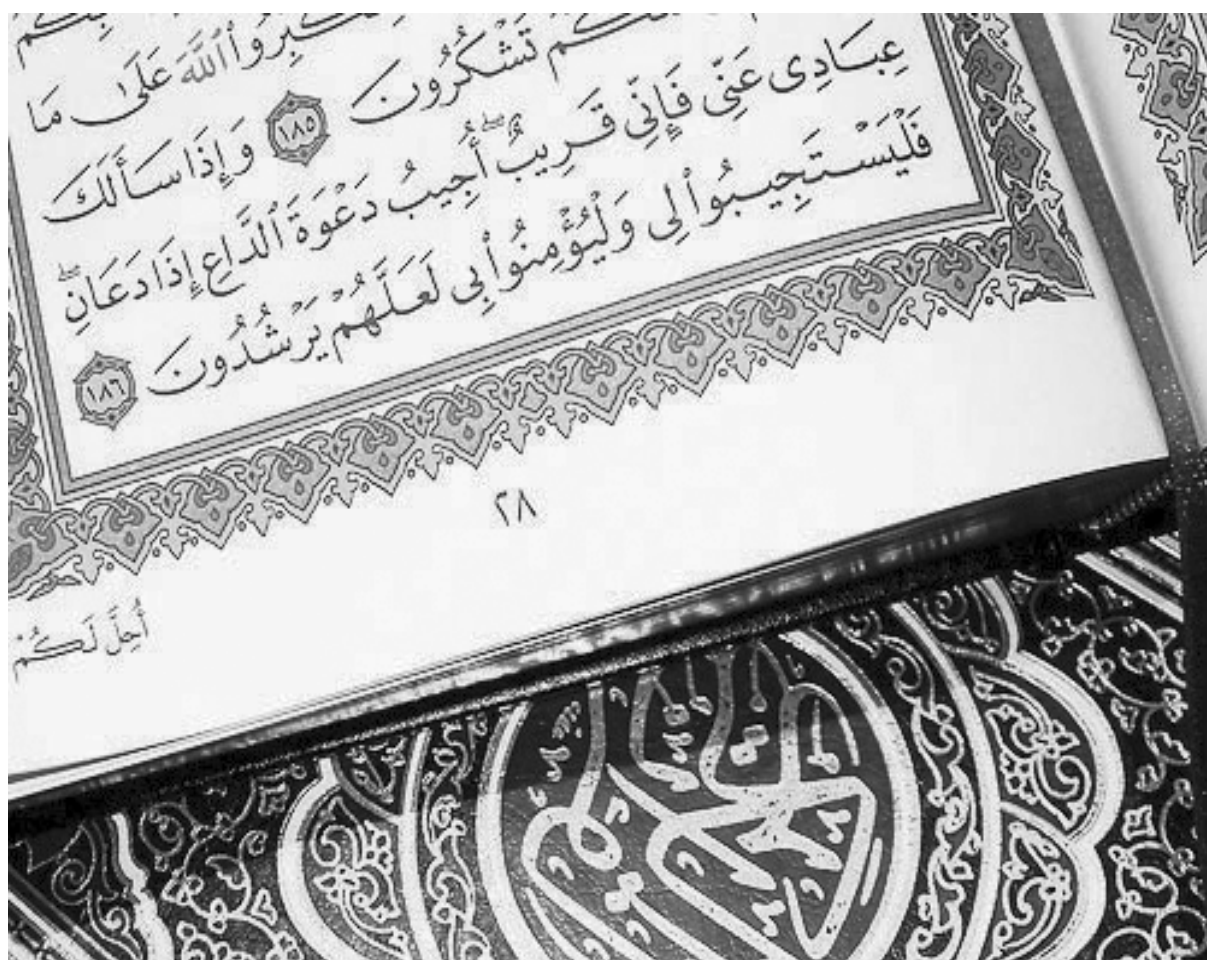 بِكُمُ
ـكَبِّرُوا۟ ٱللَّهَ عَلَىٰ مَا
ـكُمْ تَشْكُرُونَ ١٨٥ وَإِذَا سَأَلَكَ
عِبَادِى عَنِّى فَإِنِّى قَرِيبٌ ۖ أُجِيبُ دَعْوَةَ ٱلدَّاعِ إِذَا دَعَانِ ۖ
فَلْيَسْتَجِيبُوا۟ لِى وَلْيُؤْمِنُوا۟ بِى لَعَلَّهُمْ يَرْشُدُونَ ١٨٦
٢٨
أُحِلَّ لَكُمْ